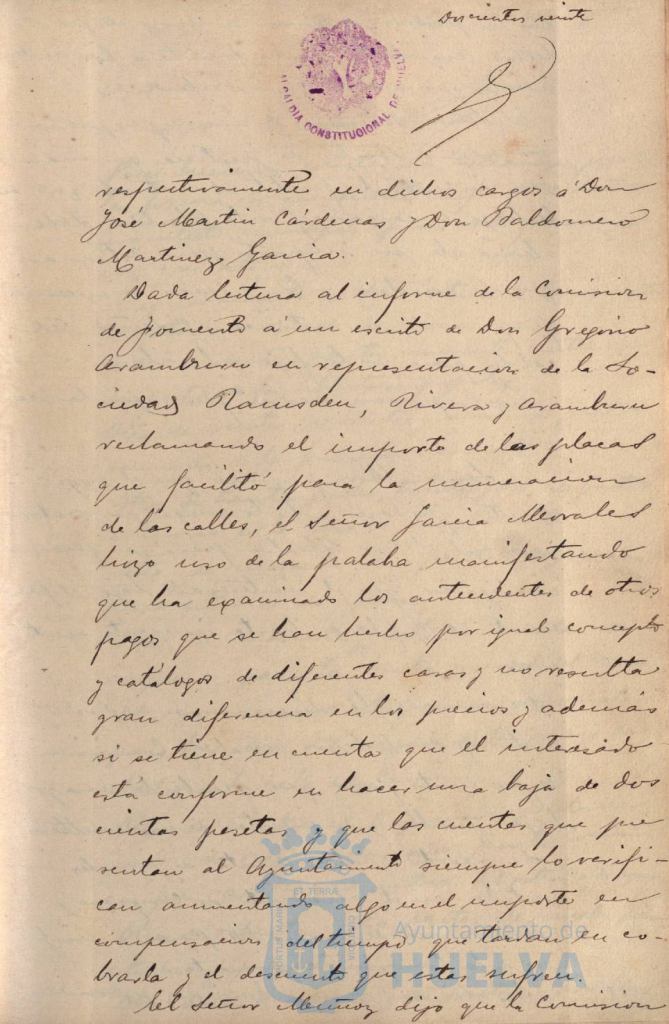 Doscientos veinte
ALCALDIA CONSTITUCIONAL DE HUELVA
respectivamente en dichos cargos á Don
José Martin Cárdenas y Don Baldomero
Martinez Garcia.
Dada lectura al informe de la Comision
de Fomento á un escrito de Don Gregorio
Aramburu en representacion de la So-
ciedad Ramsden, Rivera y Aramburu
reclamando el importe de las placas
que facilitó para la numeracion
de las calles, el Señor Garcia Morales
hizo uso de la palaba manifestando
que ha examinado los antecedentes de otros
pagos que se han hecho por igual concepto
y catálogos de diferentes casas y no resulta
gran diferencia en los precios y además
si se tiene en cuenta que el interesado
está conforme en hacer una baja de dos
cientas pesetas y que las cuentas que pre
sentan al Ayuntamiento siempre lo verifi-
can aumentando algo en el importe en
compensacion del tiempo que tardan en co-
brarla y el descuento que estas sufren.
El Señor Muñoz dijo que la Comision
Ayuntamiento de
HUELVA